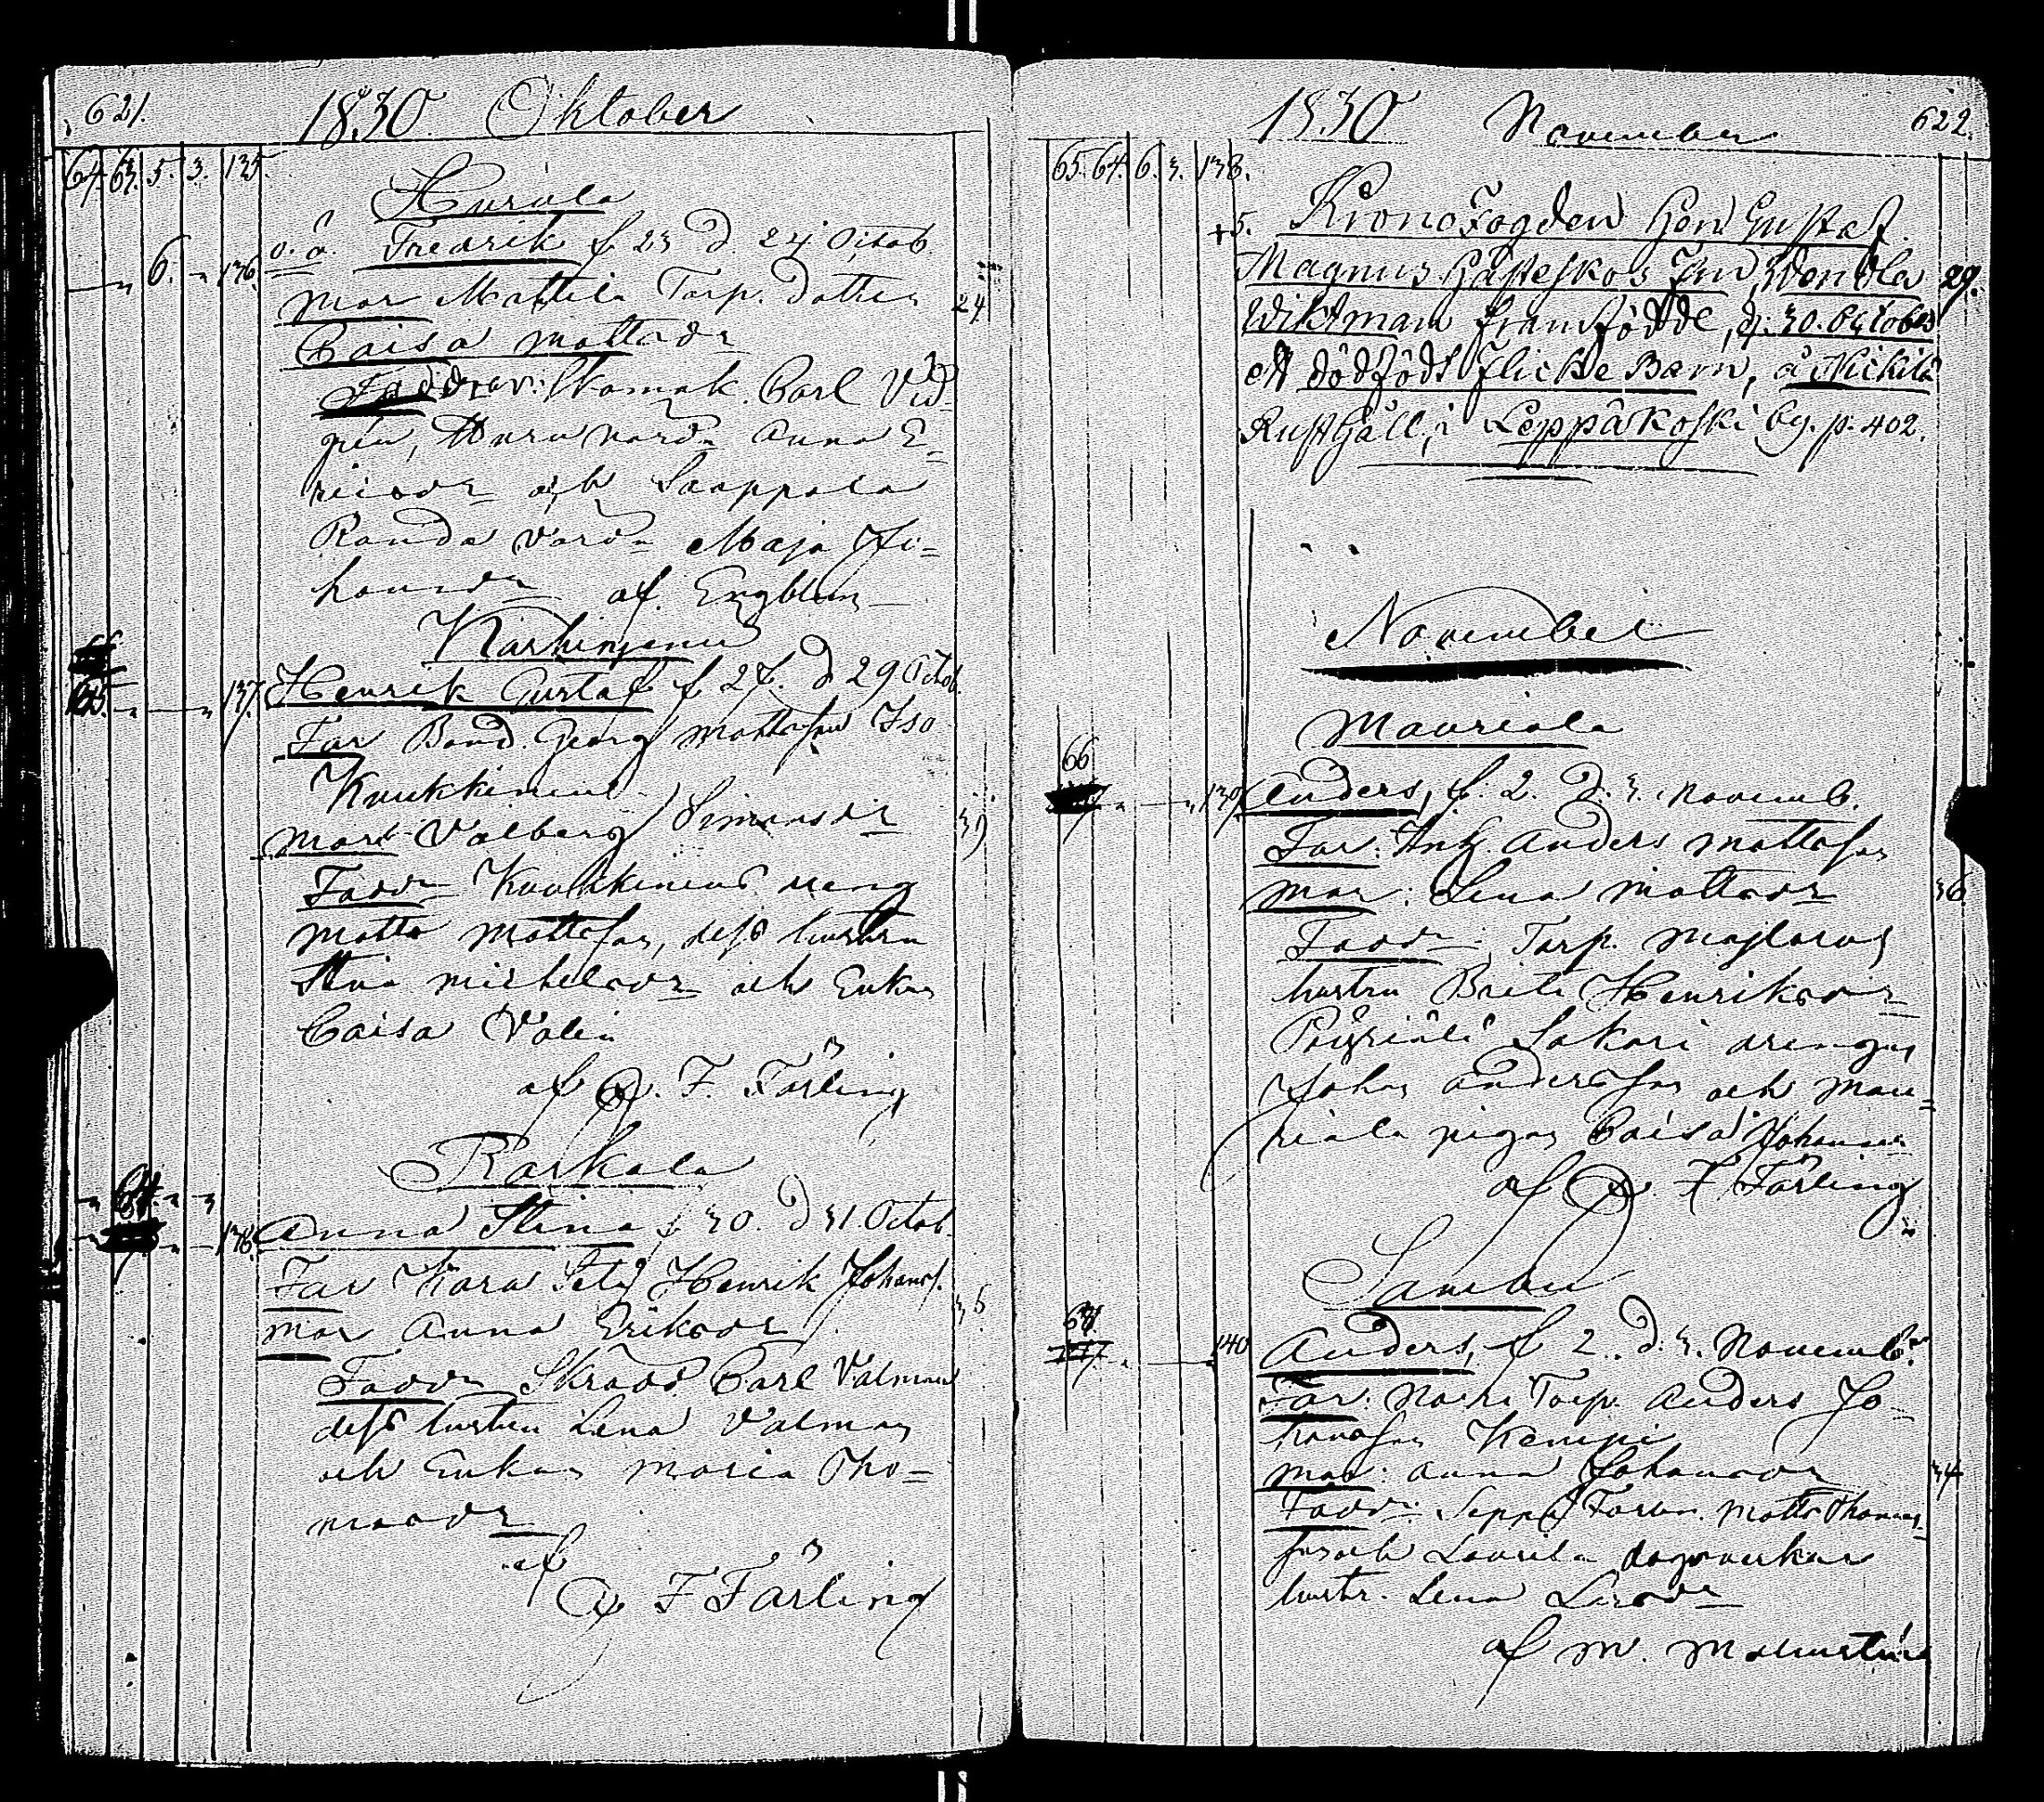 621. 1830 Oktober
64. 63. 5. 3. 135.
Hurula
o. ä. Fredrik f. 23 d. 24 Octob.
6. 136.
Mor Mattila Torp. dotter
24
Caisa Mattsdr
Faddrar: Skomak. Carl Vid-
gren, Huru värd: Anna E-
ricsdr och Saappala
Randa värd: Maja Jo-
hansdr af Engblom
Karhinjemi
137. Henrik Gustaf f. 27. d 29 Octob.
65.
Far Bond. Georg Mattsson Iso
Kuukkiniemi
Mor Valborg Simonsdr
39
Faddr Kuukkiniemi dreng
Matts Mattsson, dess hustru
Stina Michelsdr och Enkan
Caisa Valin
af F. Färling
Raskala
64.
138. Anna Stina f 30. d 31. Octob
Far Kara Sety Henrik Johanss.
Mor Anna Eriksdr
Faddr Skrädd Carl Valman
dess hustru Lena Valman
och Enkan Maria Tho-
masdr
af
F Färling
1830 November 622.
65. 64. 6. 3. 138.
+5. KronoFogden Herr Gustaf
Magnus Hästeskos Fru, Wendla 29.
Wiktman framfödde, d. 30. October
ett dödfödt flicke Barn, å Nickilä
Rusthåll, i Leppäkoski by. p. 402.
November
Mauriala
66
139 Anders, f. 2. d. 3. Novemb.
Far: Inh. Anders Mattsson
Mor: Lena Mattsdr 36
Faddr: Torp.
hustru Brita Henriksdr
Sakari drengen
Johan Andersson och Mau-
riala pigan Caisa Johansdr
af F Färling
Sambu
67.
140 Anders, f 2. d. 3. Novemb.
Far: Torp. Anders Jo-
hansson Kemppi
Mor: Anna Johansdr 34
Faddr: Seppä Matts Thomas-
son och Laurila dagsverkar
hustr. Lena
af M.